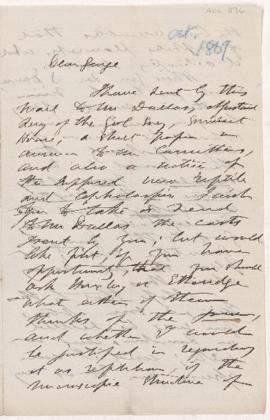 Oct.
1869
Dear George
I have sent by this
mail to Mr Dallas, Assistant
Secy of the Geol Socy, Somerset
House, a short paper in
answer to Mr Carruthers,
and also a notice of
the supposed new reptile
and Cephalaspis. I wish
you to take or send
to Mr Dallas the casts
sent by you; but would
like first if you have
opportunity that you should
ask Huxley or Etheridge
what either of them
thinks of the
and whether I would
be justified in regarding
it as reptilian, if the
microscopic structure of